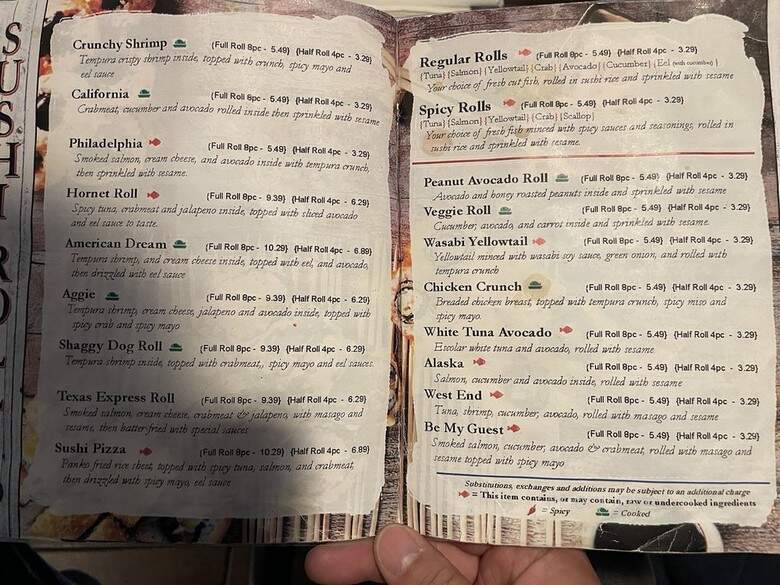 SUSHI ROL
Crunchy Shrimp {Full Roll 8pc - 5.49} {Half Roll 4pc - 3.29}
Tempura crispy shrimp inside, topped with crunch, spicy mayo and
eel sauce
California {Full Roll 8pc - 5.49} {Half Roll 4pc - 3.29}
Crabmeat, cucumber and avocado rolled inside then sprinkled with sesame
Philadelphia {Full Roll 8pc - 5.49} {Half Roll 4pc - 3.29}
Smoked salmon, cream cheese, and avocado inside with tempura crunch,
then sprinkled with sesame.
Hornet Roll {Full Roll 8pc - 9.39} {Half Roll 4pc - 6.29}
Spicy tuna, crabmeat and jalapeno inside, topped with sliced avocado
and eel sauce to taste.
American Dream {Full Roll 8pc - 10.29} {Half Roll 4pc - 6.89}
Tempura shrimp, and cream cheese inside, topped with eel, and avocado,
then drizzled with eel sauce
Aggie {Full Roll 8pc - 9.39} {Half Roll 4pc - 6.29}
Tempura shrimp, cream cheese, jalapeno and avocado inside, topped with
spicy crab and spicy mayo
Shaggy Dog Roll {Full Roll 8pc - 9.39} {Half Roll 4pc - 6.29}
Tempura shrimp inside, topped with crabmeat,, spicy mayo and eel sauces.
Texas Express Roll {Full Roll 8pc - 9.39} {Half Roll 4pc - 6.29}
Smoked salmon, cream cheese, crabmeat & jalapeno, with masago and
sesame, then batter-fried with special sauces
Sushi Pizza {Full Roll 8pc - 10.29} {Half Roll 4pc - 6.89}
Panko fried rice sheet, topped with spicy tuna, salmon, and crabmeat,
then drizzled with spicy mayo, eel sauce
Regular Rolls {Full Roll 8pc - 5.49} {Half Roll 4pc - 3.29}
{Tuna} {Salmon} {Yellowtail} {Crab} {Avocado} {Cucumber} {Eel (with cucumber) }
Your choice of fresh cut fish, rolled in sushi rice and sprinkled with sesame
Spicy Rolls {Full Roll 8pc - 5.49} {Half Roll 4pc - 3.29}
{Tuna} {Salmon} {Yellowtail} {Crab} {Scallop}
Your choice of fresh fish minced with spicy sauces and seasonings, rolled in
sushi rice and sprinkled with sesame.
Peanut Avocado Roll {Full Roll 8pc - 5.49} {Half Roll 4pc - 3.29}
Avocado and honey roasted peanuts inside and sprinkled with sesame
Veggie Roll {Full Roll 8pc - 5.49} {Half Roll 4pc - 3.29}
Cucumber, avocado, and carrot inside and sprinkled with sesame.
Wasabi Yellowtail {Full Roll 8pc - 5.49} {Half Roll 4pc - 3.29}
Yellowtail minced with wasabi soy sauce, green onion, and rolled with
tempura crunch
Chicken Crunch {Full Roll 8pc - 5.49} {Half Roll 4pc - 3.29}
Breaded chicken breast, topped with tempura crunch, spicy miso and
spicy mayo.
White Tuna Avocado {Full Roll 8pc - 5.49} {Half Roll 4pc - 3.29}
Escolar white tuna and avocado, rolled with sesame
Alaska {Full Roll 8pc - 5.49} {Half Roll 4pc - 3.29}
Salmon, cucumber and avocado inside, rolled with sesame
West End {Full Roll 8pc - 5.49} {Half Roll 4pc - 3.29}
Tuna, shrimp, cucumber, avocado, rolled with masago and sesame
Be My Guest {Full Roll 8pc - 5.49} {Half Roll 4pc - 3.29}
Smoked salmon, cucumber, avocado & crabmeat, rolled with masago and
sesame topped with spicy mayo
Substitutions, exchanges and additions may be subject to an additional charge
= This item contains, or may contain, raw or undercooked ingredients
= Spicy = Cooked